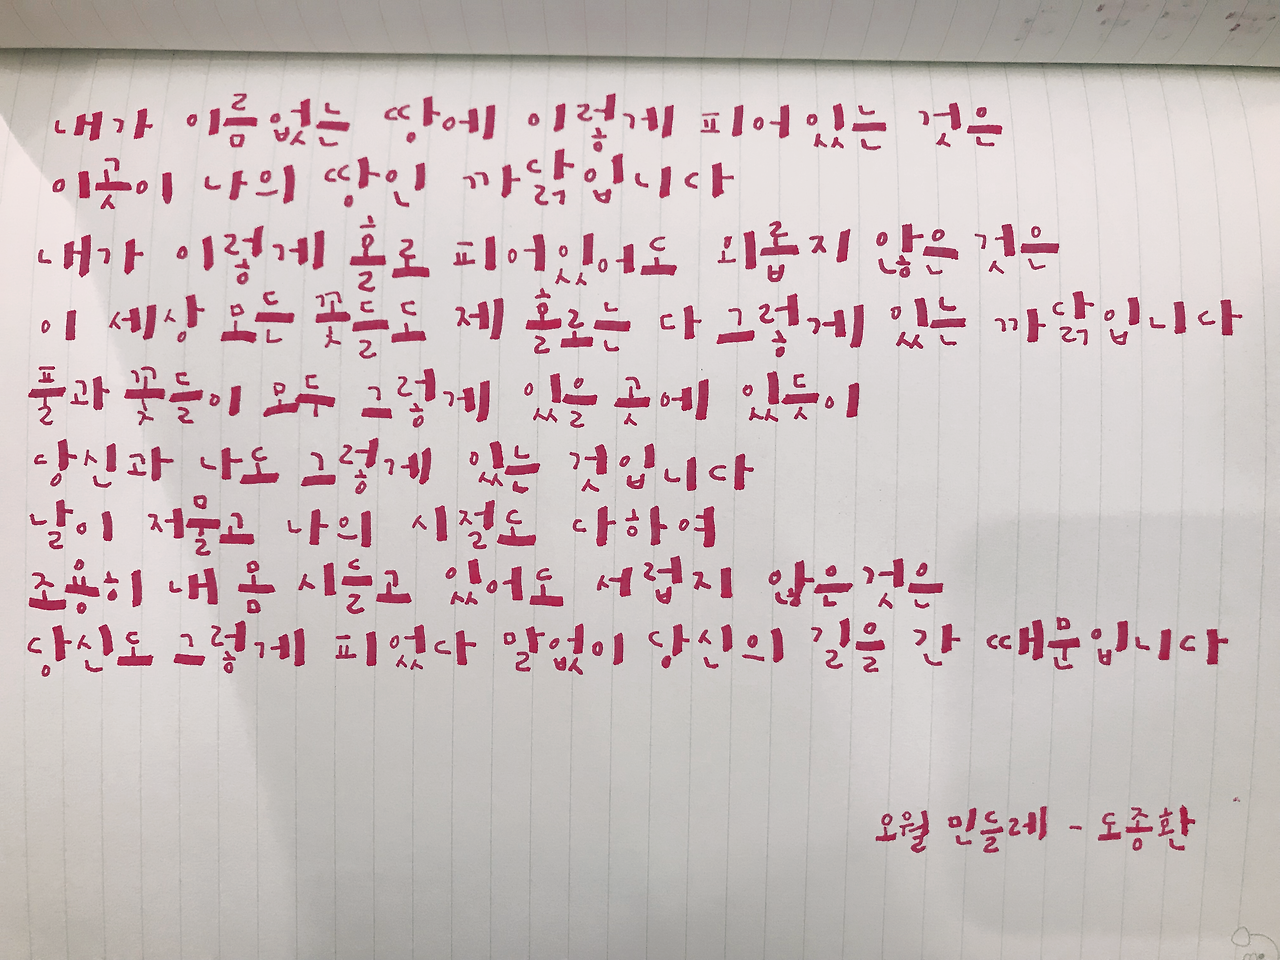 내가 이름없는 땅에 이렇게 피어있는 것은
이곳이 나의 땅인 까닭입니다
내가 이렇게 홀로 피어있어도 외롭지 않은 것은
이 세상 모든 꽃들도 제 홀로는 다 그렇게 있는 까닭입니다
풀과 꽃들이 모두 그렇게 있을 곳에 있듯이
당신과 나도 그렇게 있는 것입니다
날이 저물고 나의 시절도 다하여
조용히 내 몸 시들고 있어도 서럽지 않은 것은
당신도 그렇게 피었다 말없이 당신의 길을 간 때문입니다
오월 민들레 - 도종환